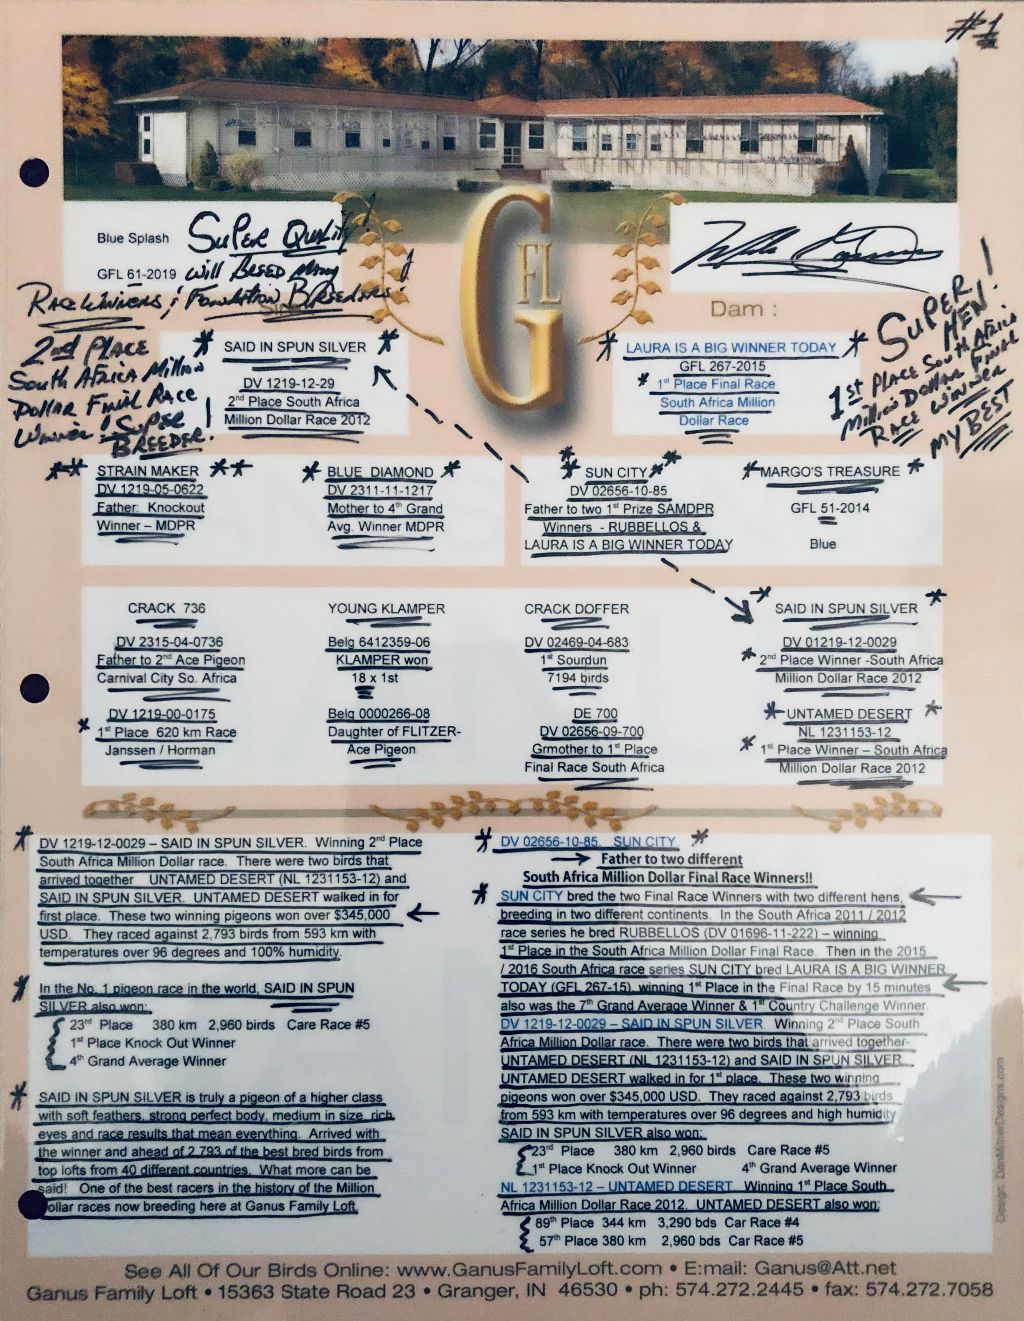 #1
Blue Splash
GFL 61-2019
Super Quality!
Will Breed Many
Race Winners! Foundation Breeders!
G
FL
Dam :
2nd Place
South Africa Million
Dollar Final Race
Winner! Super
Breeder!
SAID IN SPUN SILVER
DV 1219-12-29
2nd Place South Africa
Million Dollar Race 2012
LAURA IS A BIG WINNER TODAY
GFL 267-2015
1st Place Final Race
South Africa Million
Dollar Race
Super!
Hen!
1st Place South Africa
Million Dollar Final
Race Winner
My Best
STRAIN MAKER
DV 1219-05-0622
Father: Knockout
Winner – MDPR
BLUE DIAMOND
DV 2311-11-1217
Mother to 4th Grand
Avg. Winner MDPR
SUN CITY
DV 02656-10-85
Father to two 1st Prize SAMDPR
Winners - RUBBELLOS &
LAURA IS A BIG WINNER TODAY
MARGO'S TREASURE
GFL 51-2014
Blue
CRACK 736
DV 2315-04-0736
Father to 2nd Ace Pigeon
Carnival City So. Africa
DV 1219-00-0175
1st Place 620 km Race
Janssen / Horman
YOUNG KLAMPER
Belg 6412359-06
KLAMPER won
18 x 1st
Belg 0000266-08
Daughter of FLITZER-
Ace Pigeon
CRACK DOFFER
DV 02469-04-683
1st Sourdun
7194 birds
DE 700
DV 02656-09-700
Grmother to 1st Place
Final Race South Africa
SAID IN SPUN SILVER
DV 01219-12-0029
2nd Place Winner -South Africa
Million Dollar Race 2012
UNTAMED DESERT
NL 1231153-12
1st Place Winner – South Africa
Million Dollar Race 2012
DV 1219-12-0029 – SAID IN SPUN SILVER. Winning 2nd Place
South Africa Million Dollar race. There were two birds that
arrived together UNTAMED DESERT (NL 1231153-12) and
SAID IN SPUN SILVER. UNTAMED DESERT walked in for
first place. These two winning pigeons won over $345,000
USD. They raced against 2,793 birds from 593 km with
temperatures over 96 degrees and 100% humidity.
In the No. 1 pigeon race in the world, SAID IN SPUN
SILVER also won:
23rd Place 380 km 2,960 birds Care Race #5
1st Place Knock Out Winner
4th Grand Average Winner
SAID IN SPUN SILVER is truly a pigeon of a higher class
with soft feathers, strong perfect body, medium in size, rich
eyes and race results that mean everything. Arrived with
the winner and ahead of 2,793 of the best bred birds from
top lofts from 40 different countries. What more can be
said! One of the best racers in the history of the Million
ollar races now breeding here at Ganus Family Loft.
DV 02656-10-85. SUN CITY
Father to two different
South Africa Million Dollar Final Race Winners!!
SUN CITY bred the two Final Race Winners with two different hens,
breeding in two different continents. In the South Africa 2011 / 2012
race series he bred RUBBELLOS (DV 01696-11-222) – winning
1st Place in the South Africa Million Dollar Final Race. Then in the 2015
/ 2016 South Africa race series SUN CITY bred LAURA IS A BIG WINNER
TODAY (GFL 267-15), winning 1st Place in the Final Race by 15 minutes
also was the 7th Grand Average Winner & 1st Country Challenge Winner.
DV 1219-12-0029 – SAID IN SPUN SILVER Winning 2nd Place South
Africa Million Dollar race. There were two birds that arrived together-
UNTAMED DESERT (NL 1231153-12) and SAID IN SPUN SILVER.
UNTAMED DESERT walked in for 1st place. These two winning
pigeons won over $345,000 USD. They raced against 2,793 birds
from 593 km with temperatures over 96 degrees and high humidity.
SAID IN SPUN SILVER also won:
23rd Place 380 km 2,960 birds Care Race #5
1st Place Knock Out Winner 4th Grand Average Winner
NL 1231153-12 – UNTAMED DESERT Winning 1st Place South
Africa Million Dollar Race 2012. UNTAMED DESERT also won:
89th Place 344 km 3,290 bds Car Race #4
57th Place 380 km 2,960 bds Car Race #5
Design: DanMilnerDesigns.com
See All Of Our Birds Online: www.GanusFamilyLoft.com • E:mail: Ganus@Att.net
Ganus Family Loft • 15363 State Road 23 • Granger, IN 46530 • ph: 574.272.2445 • fax: 574.272.7058